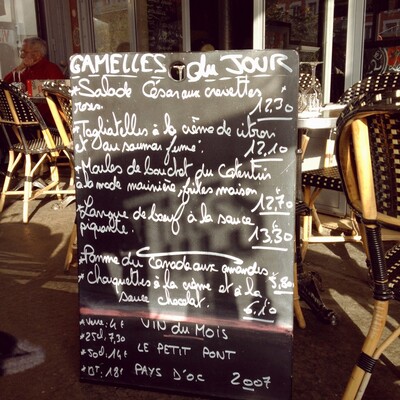 GAMELLES du JOUR
*Salade César aux crevettes
roses. 12,30
*Tagliatelles à la crème de citron
et au saumon fumé. 12,10
*Moules de bouchot du Cotentin
à la mode marinière, frites maison
12,70
*Langue de bœuf à la sauce
piquante. 13,30
*Pomme du Canada aux amandes
5,80
*Chouquettes à la crème et à la
sauce chocolat. 6,10
*verre: 4€ VIN du MOIS
*25cl, 7,30
*50cl, 14€ LE PETIT PONT
18€ PAYS D'OC 2007